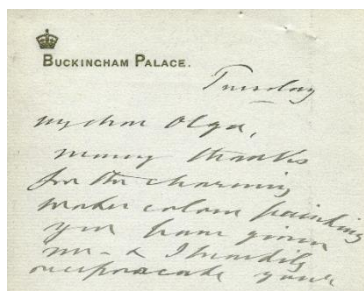 BUCKINGHAM PALACE.
Tuesday
My dear Olga,
many thanks
for the charming
water colour painting
you have given
me - & I heartily
reciprocate your